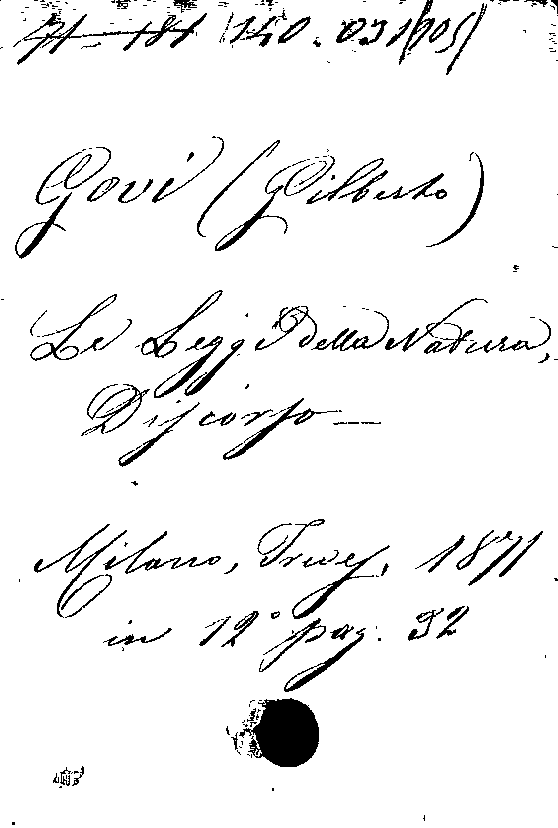 71-181 140.031(905)
Govi (Gilberto)
Le Leggi della Natura,
Discorso —
Milano, Treves, 1871
in 12° pag. 32